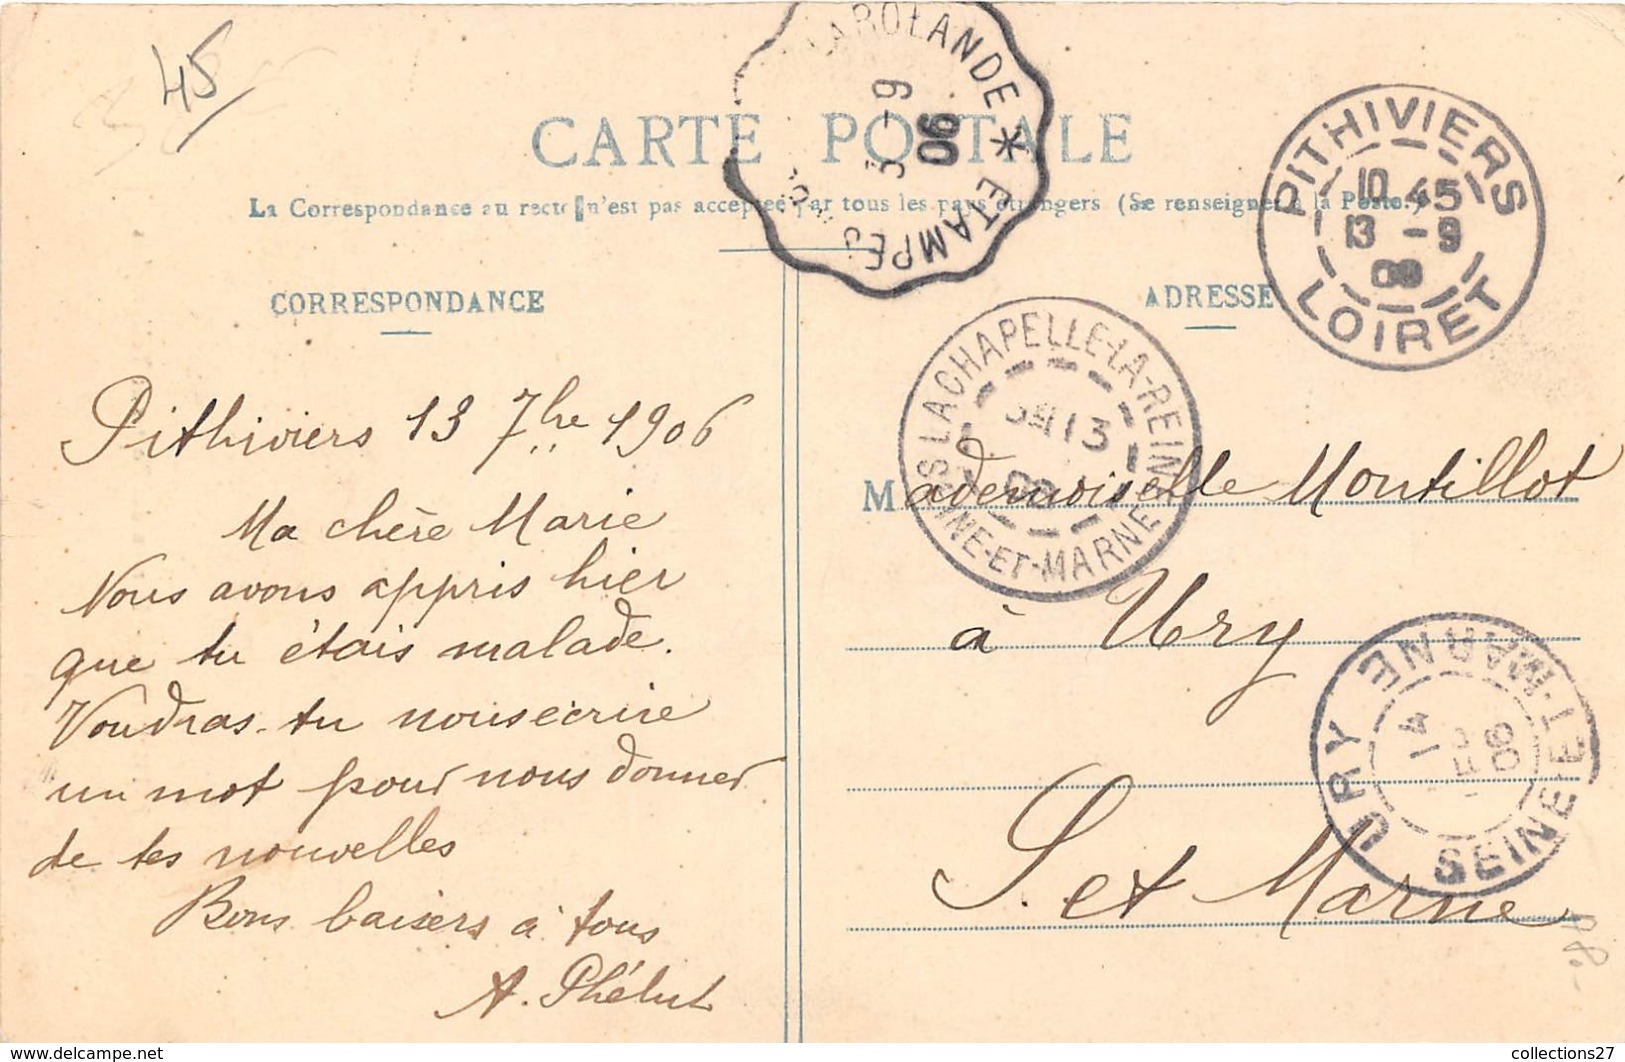 45
CARTE POSTALE
La Correspondance au recto n'est pas acceptée par tous les pays étrangers (Se renseigner à la Poste.)
CORRESPONDANCE
Pithiviers 13 7bre 1906
Ma chère Marie
Nous avons appris hier
que tu étais malade.
Voudras-tu nous écrire
un mot pour nous donner
de tes nouvelles
Bons baisers à tous
A. Phélut
ADRESSE
Mademoiselle Montillot
à Ury
S. et Marne
ROLANDE * ETAMPES
3 -9
06
PITHIVIERS
10 45
13 -9
LOIRET
LA CHAPELLE-LA-REINE
13
SEINE-ET-MARNE
URY
14
06
SEINE-ET-MARNE
www.delcampe.net
collections27